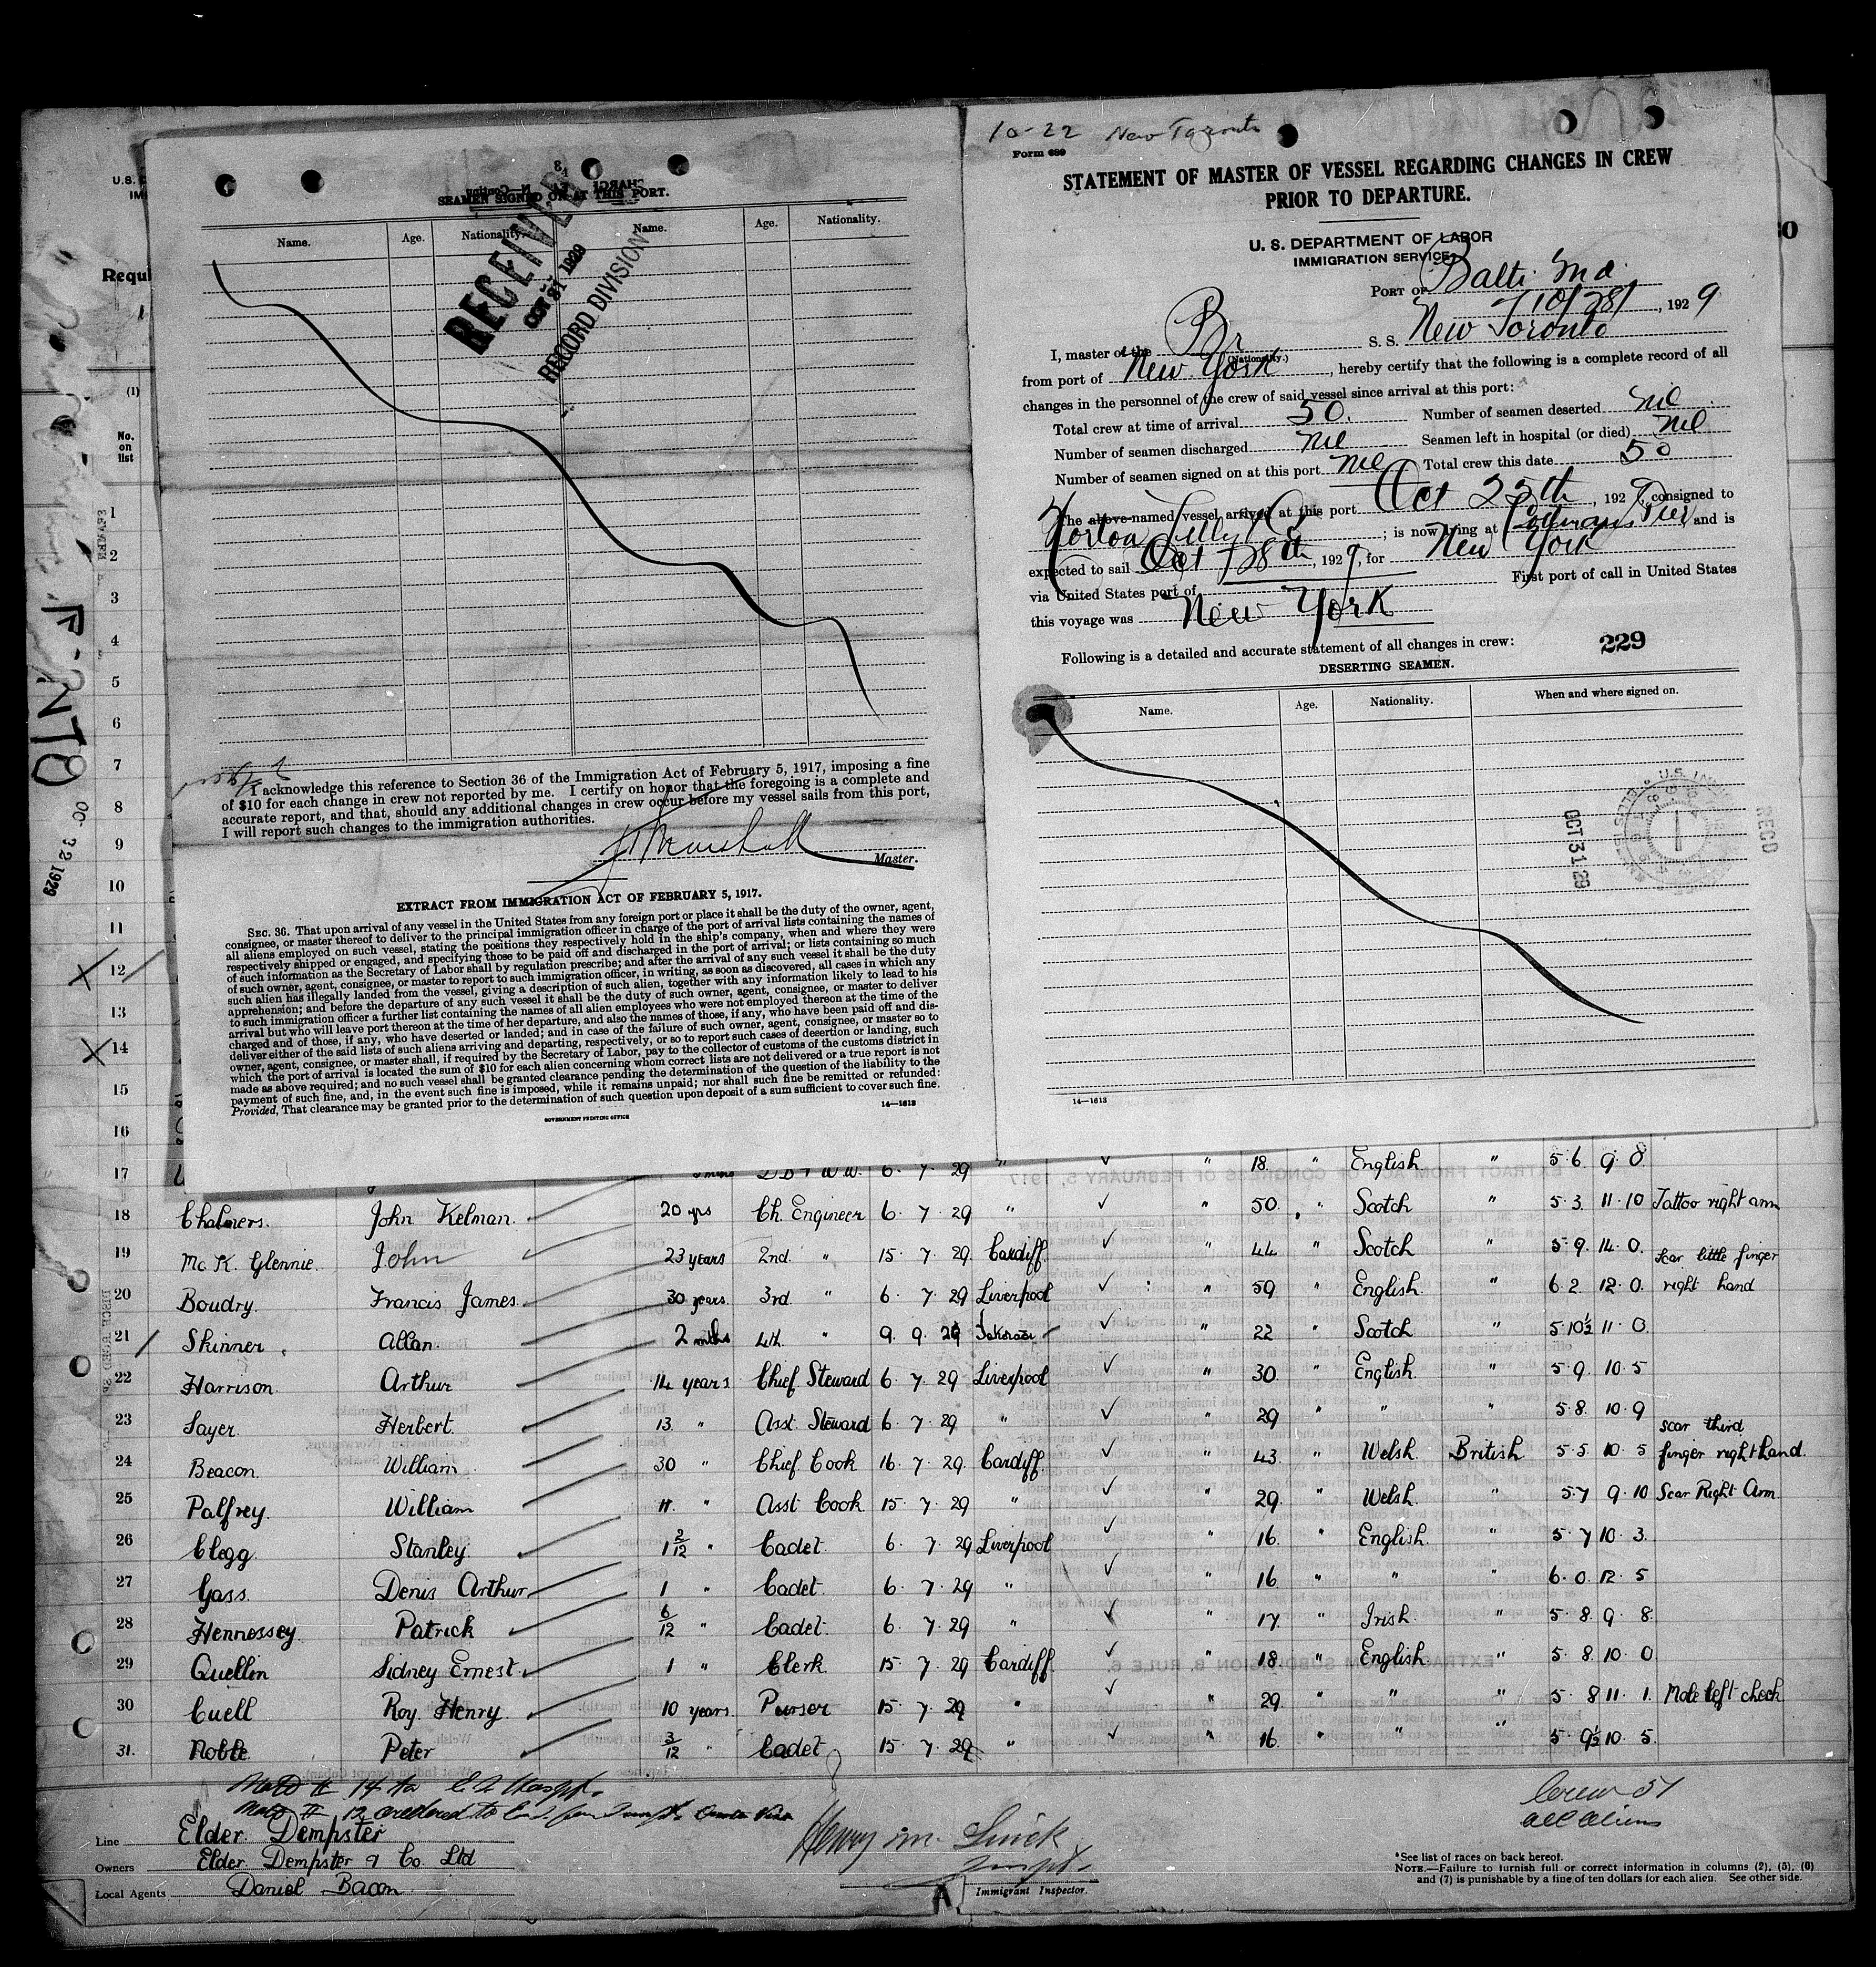 SEAMEN SIGNED ON AT THIS PORT.
Name. Age. Nationality. Name. Age. Nationality.
RECEIVED
OCT 31 1929
RECORD DIVISION
I acknowledge this reference to Section 36 of the Immigration Act of February 5, 1917, imposing a fine
of $10 for each change in crew not reported by me. I certify on honor that the foregoing is a complete and
accurate report, and that, should any additional changes in crew occur before my vessel sails from this port,
I will report such changes to the immigration authorities.
Marshall
Master.
EXTRACT FROM IMMIGRATION ACT OF FEBRUARY 5, 1917.
SEC. 36. That upon arrival of any vessel in the United States from any foreign port or place it shall be the duty of the owner, agent,
consignee, or master thereof to deliver to the principal immigration officer in charge of the port of arrival lists containing the names of
all aliens employed on such vessel, stating the positions they respectively hold in the ship's company, when and where they were
respectively shipped or engaged, and specifying those to be paid off and discharged in the port of arrival; or lists containing so much
of such information as the Secretary of Labor shall by regulation prescribe; and after the arrival of any such vessel it shall be the duty
of such owner, agent, consignee, or master to report to such immigration officer, in writing, as soon as discovered, all cases in which any
such alien has illegally landed from the vessel, giving a description of such alien, together with any information likely to lead to his
apprehension; and before the departure of any such vessel it shall be the duty of such owner, agent, consignee, or master to deliver
to such immigration officer a further list containing the names of all alien employees who were not employed thereon at the time of the
arrival but who will leave port thereon at the time of her departure, and also the names of those, if any, who have been paid off and dis-
charged and of those, if any, who have deserted or landed; and in case of the failure of such owner, agent, consignee, or master so to
deliver either of the said lists of such aliens arriving and departing, respectively, or so to report such cases of desertion or landing, such
owner, agent, consignee, or master shall, if required by the Secretary of Labor, pay to the collector of customs of the customs district in
which the port of arrival is located the sum of $10 for each alien concerning whom correct lists are not delivered or a true report is not
made as above required; and no such vessel shall be granted clearance pending the determination of the question of the liability to the
payment of such fine, and, in the event such fine is imposed, while it remains unpaid; nor shall such fine be remitted or refunded:
Provided, That clearance may be granted prior to the determination of such question upon deposit of a sum sufficient to cover such fine.
14—1613
GOVERNMENT PRINTING OFFICE
10-22 New Toronto
Form 689
STATEMENT OF MASTER OF VESSEL REGARDING CHANGES IN CREW
PRIOR TO DEPARTURE.
U. S. DEPARTMENT OF LABOR
IMMIGRATION SERVICE
PORT OF Balti Md.
10/28/, 1929
I, master of the Br S. S. New Toronto
(Nationality.)
from port of New York, hereby certify that the following is a complete record of all
changes in the personnel of the crew of said vessel since arrival at this port:
Total crew at time of arrival 50. Number of seamen deserted nil
Number of seamen discharged nil Seamen left in hospital (or died) nil
Number of seamen signed on at this port nil Total crew this date 50
The above-named vessel arrived at this port Oct 25th, 1929, consigned to
Norton Lilly & Co; is now lying at Pier and is
expected to sail Oct 28th, 1929, for New York
via United States port of First port of call in United States
this voyage was New York
Following is a detailed and accurate statement of all changes in crew:
229
DESERTING SEAMEN.
Name. Age. Nationality. When and where signed on.
OCT 31 29
RECD
14—1613
(1)
No.
on
list
1
2
3
4
5
6
7
8
9
10
11
12
13
14
15
16
17 6. 7. 29 " " 18. " English. " 5·6. 9·8.
18 Chalmers. John Kelman. 20 yrs Ch. Engineer 6. 7. 29 " " 50. " Scotch " 5·3. 11·10 Tattoo right arm
19 Mc K. Glennie. John 23 years 2nd. " 15. 7. 29. Cardiff. " 44 " Scotch " 5·9. 14·0. Scar little finger
20 Boudry. Francis James. 30 years. 3rd. " 6. 7. 29 Liverpool " 59. " English. " 6·2. 12·0. right hand
21 Skinner. Allan. 2 mths 4th. " 9. 9. 29 " 22 " Scotch " 5·10½ 11·0.
22 Harrison. Arthur 14 years Chief Steward 6. 7. 29 Liverpool " 30. " English. " 5·9. 10·5
23 Sayer. Herbert. 13. " Asst. Steward 6. 7. 29 " " 29 " " " 5·8. 10·9
24 Beacon. William 30 " Chief Cook 16. 7. 29. Cardiff. " 43. " Welsh. British 5·5. 10·5 scar third finger right hand.
25 Palfrey. William 11. " Asst Cook 15. 7. 29 " " 29. " Welsh. " 5·7 9·10 Scar Right Arm.
26 Clegg. Stanley. 1 2/12 " Cadet. 6. 7. 29 Liverpool " 16. " English. " 5·7 10·3.
27 Gass. Denis Arthur. 1 " Cadet. 6. 7. 29 " " 16. " " " 6·0. 12·5
28 Hennessey. Patrick 6/12 " Cadet. 6. 7. 29 " " 17. " Irish. " 5·8. 9·8.
29 Quellin Sidney Ernest. 1 " Clerk 15. 7. 29 Cardiff. " 18. " English. " 5·8. 10·0.
30 Cuell Roy. Henry. 10 years. Purser 15. 7. 29 " " 29. " " " 5·8 11·1. Mole left cheek
31. Noble Peter 3/12 " Cadet 15. 7. 29 " " 16. " " " 5·9½ 10·5.
Crew 51
all aliens
Line Elder Dempster
Owners Elder Dempster & Co. Ltd
Local Agents Daniel Bacon.
Henry M. Linick
Immigrant Inspector.
A
*See list of races on back hereof.
NOTE.—Failure to furnish full or correct information in columns (2), (5), (6)
and (7) is punishable by a fine of ten dollars for each alien. See other side.